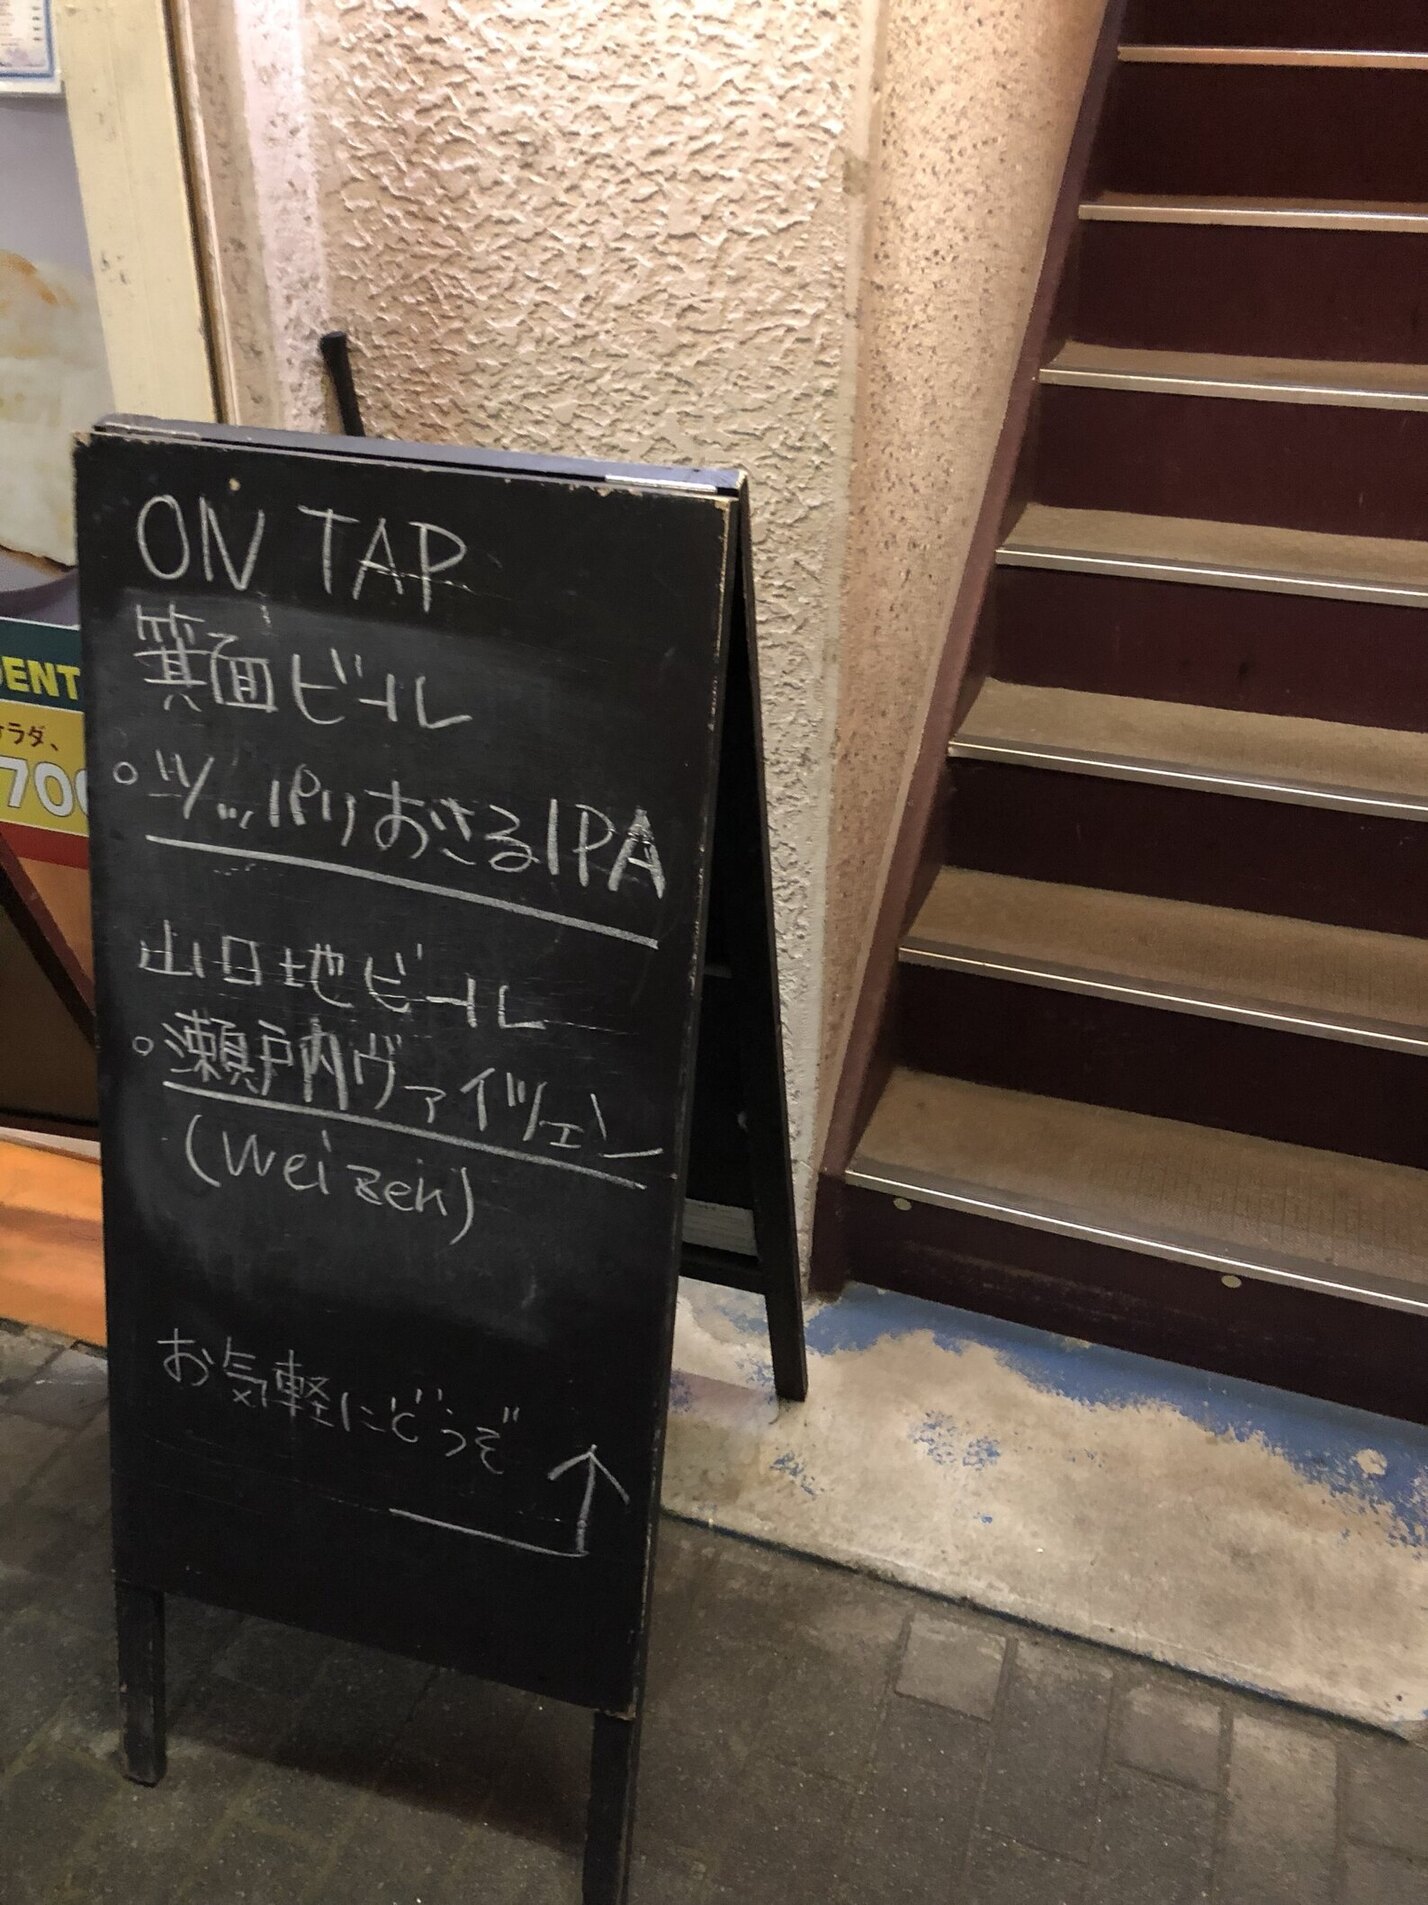 ON TAP
箕面ビール
○ツッパリおさるIPA
山口地ビール
○瀬戸内ヴァイツェン
(weizen)
お気軽にどうぞ
↑
DENT
サラダ、
700